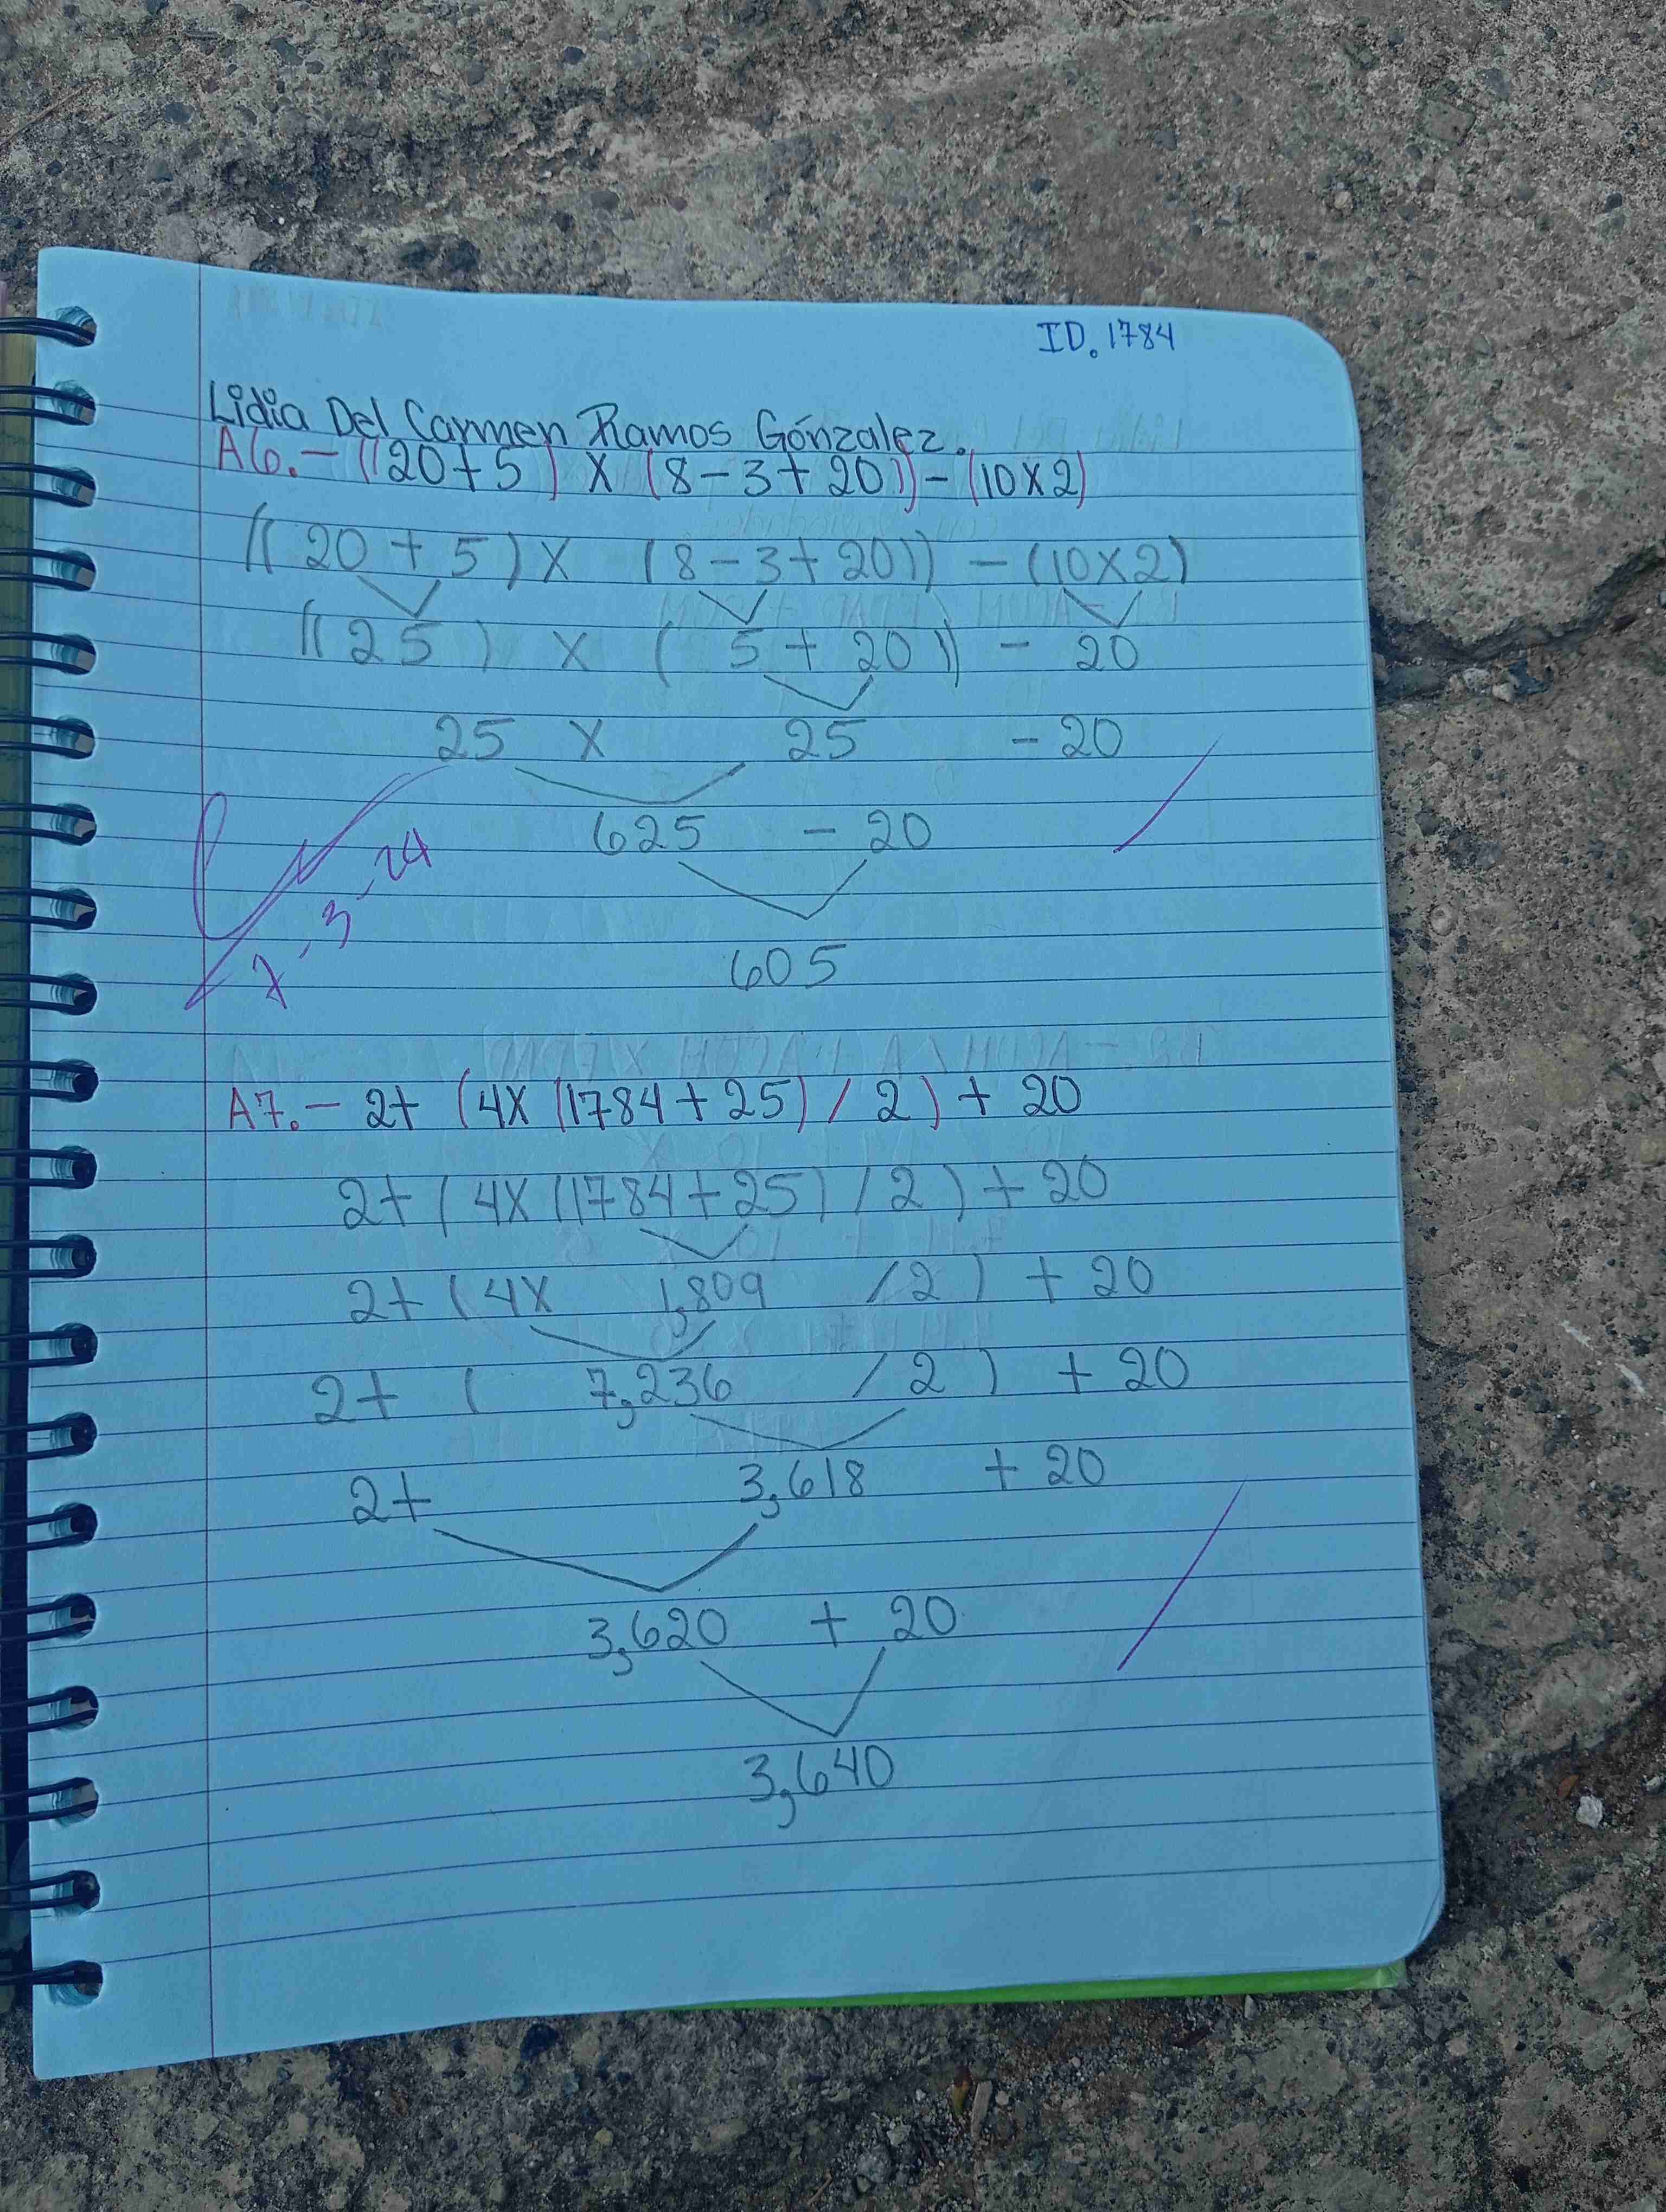 ID. 1784
Lidia Del Carmen Ramos Gónzalez.
A6.- ((20+5) X (8-3+20))-(10X2)
((20+5)X (8-3+20))-(10X2)
((25) X (5+20))- 20
25 X 25 -20
625 - 20
7-3-24
605
A7.- 2+ (4X (1784+25)/2)+ 20
2+(4X(1784+25)/2)+20
2+(4X 1,809 /2)+20
2+ ( 7,236 /2) +20
2+ 3,618 +20
3,620 + 20
3,640